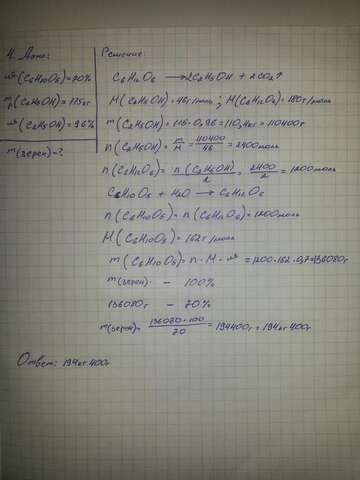 4. Дано:
ω(C6H10O5)=70%
mр(C2H5OH)=115кг
ω(C2H5OH)=96%
m(зерен)-?
Решение:
C6H12O6 → 2C2H5OH + 2CO2↑
M(C2H5OH)=46г/моль; M(C6H12O6)=180г/моль
m(C2H5OH)=115·0,96=110,4кг=110400г
n(C2H5OH)=m/M=110400/46=2400моль
n(C6H12O6)=n(C2H5OH)/2=2400/2=1200моль
C6H10O5 + H2O → C6H12O6
n(C6H10O5)=n(C6H12O6)=1200моль
M(C6H10O5)=162г/моль
m(C6H10O5)=n·M·ω=1200·162·0,7=136080г
m(зерен) - 100%
136080г - 70%
m(зерен)=136080·100/70=194400г=194кг 400г
Ответ: 194кг 400г